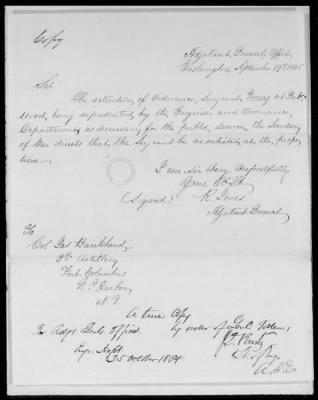 Copy
Adjutant General's Office,
Washington, September 19th 18
Sir
The retention of Ordnance Sergeant at Fort
Wood, being represented by the Engineer and Ordnance
Departments as necessary for the public service, the Secretary
of War directs that the Sergeant be at the proper
time.
I am Sir Very Respectfully
Your Obt Svt
(Signed) R. Jones
Adjutant General
To
Col. Jas. Bankhead,
2d Artillery
Fort Columbus
N.Y. Harbor
N.Y.
A true copy
Adjt. Genls. Office. by order of Genl. Totten,
Engr. Dept
25 October 1854